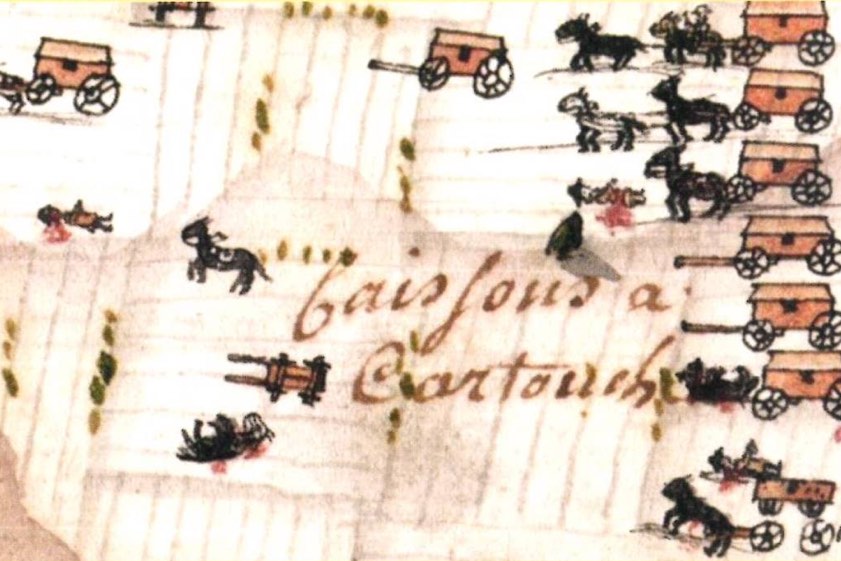 Caissons a
Cartouche